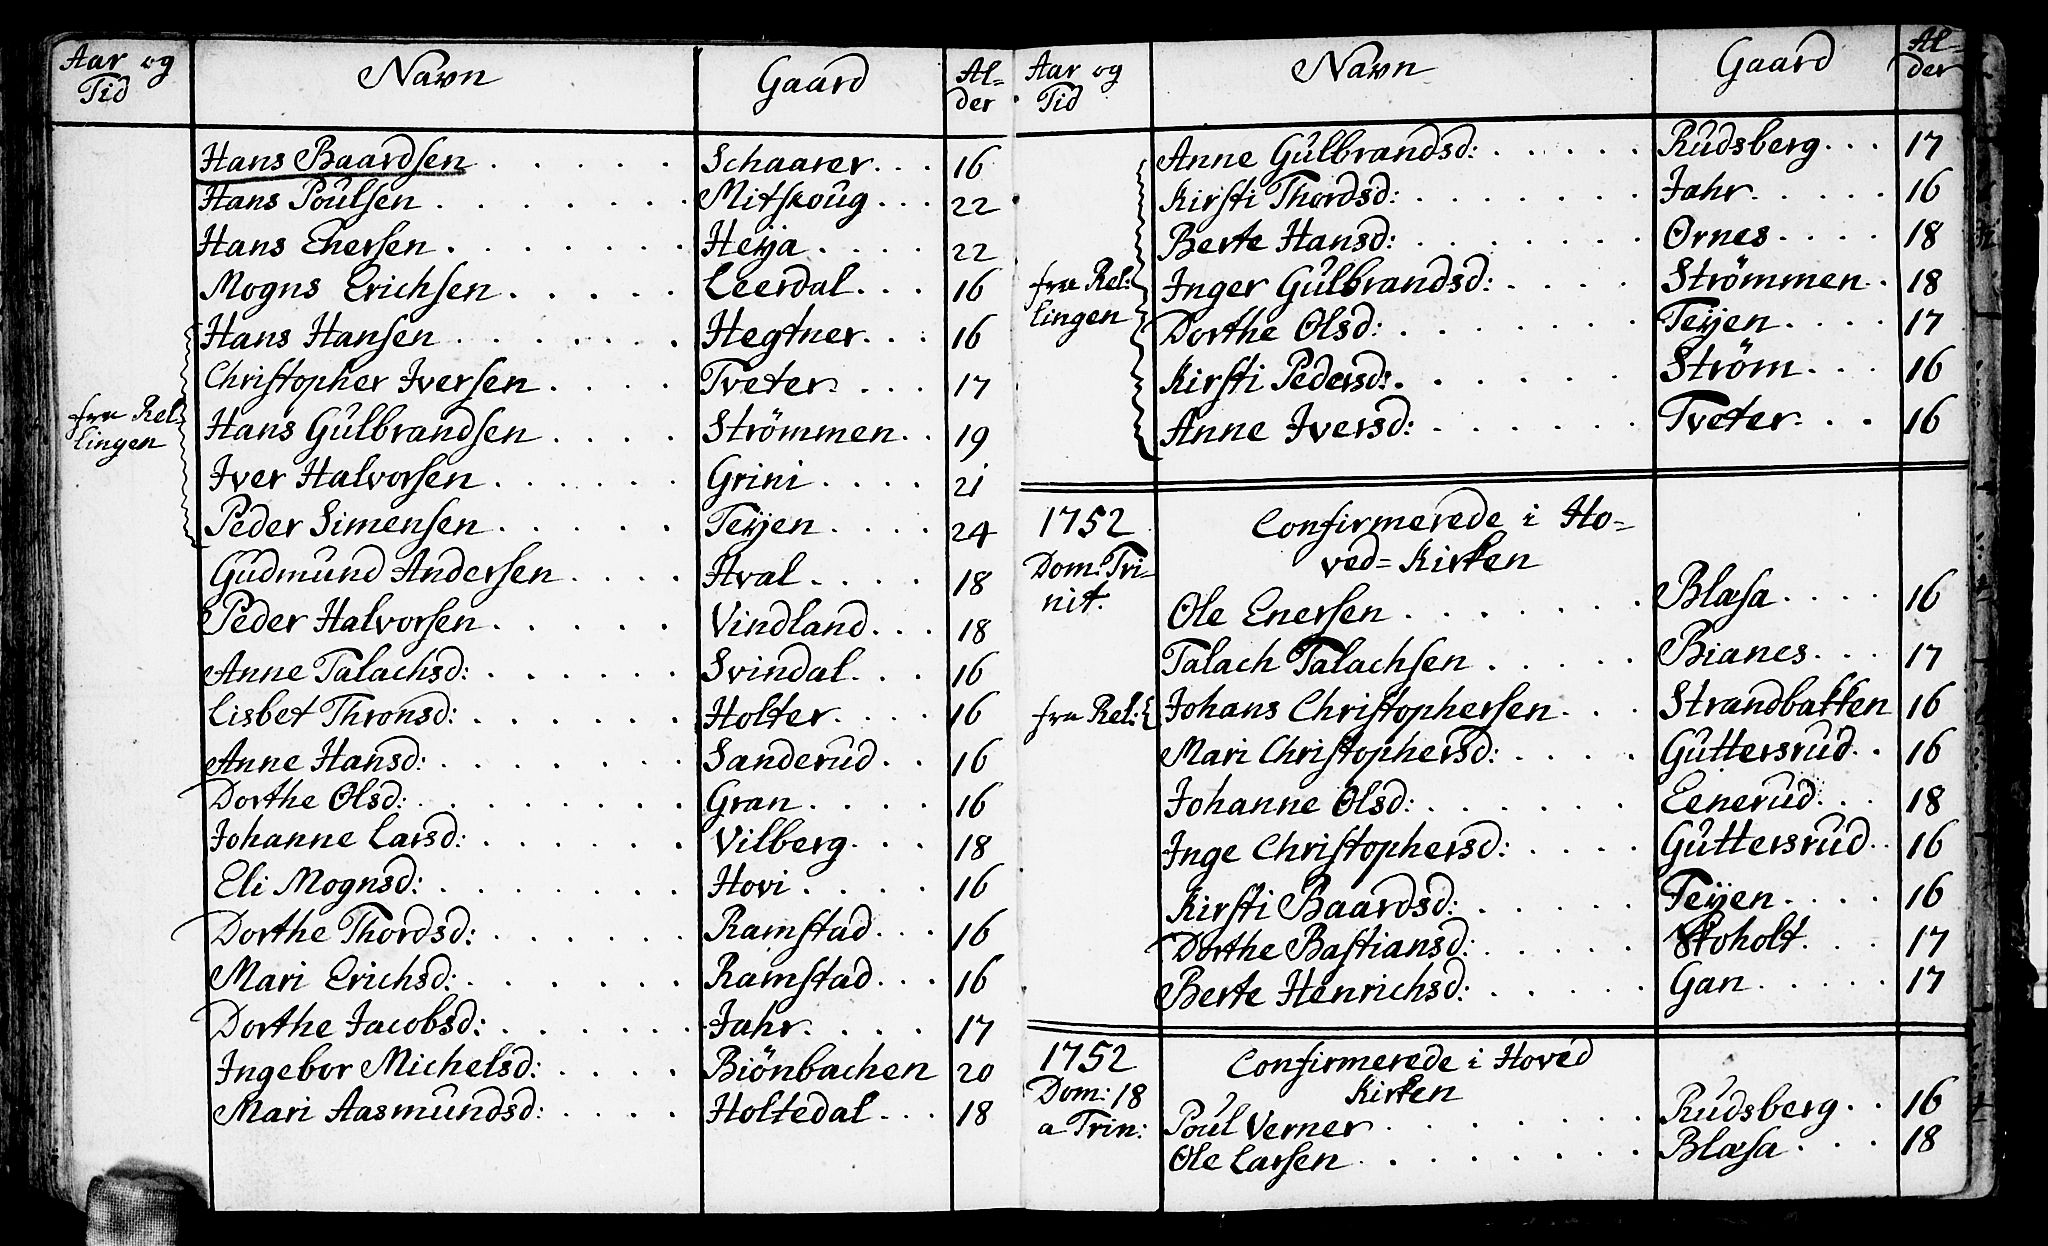 Aar og Tid | Navn | Gaard | Al-der
Hans Baardsen . . . . . Schaarer . . . 16
Hans Poulsen . . . . . . . Mitskoug . . . 22
Hans Enersen . . . . . . . Heija . . . . 22
Mogns Erichsen . . . . . Leerdal . . . 16
Hans Hansen . . . . . . . Hegtner . . . 16
Christopher Iversen . . . . Tveter . . . 17
fra Rel-lingen
Hans Gülbrandsen . . . . Strömmen . . 19
Iver Halvorsen . . . . . . Grini . . . . 21
Peder Simensen . . . . . Teÿen . . . . 24
Gudmund Andersen . . . . Hval . . . . 18
Peder Halvorsen . . . . . Vindland . . . 18
Anne Talachsd: . . . . . . Svindal . . . 16
Lisbet Thronsd: . . . . . . Holter . . . . 16
Anne Hansd: . . . . . . . Sanderud . . 16
Dorthe Olsd: . . . . . . . . Gran . . . . 16
Johanne Larsd: . . . . . . Vilberg . . . 18
Eli Mognsd: . . . . . . . Hovi . . . . 16
Dorthe Thordsd: . . . . . . Ramstad . . . 16
Mari Erichsd: . . . . . . Ramstad . . . 16
Dorthe Jacobsd: . . . . . . Jahr . . . . 17
Ingebor Michelsd: . . . . Biönbachen 20
Mari Aasmundsd: . . . . Holtedal . . . 18
Aar og Tid | Navn | Gaard | Al-der
Anne Gülbrandsd: . . . . . Rudsberg . . . 17
Kirsti Thordsd: . . . . . . . Jahr . . . . . 16
Berte Hansd: . . . . . . . Ornes . . . . 18
fra Rel:lingen
Inger Gülbrandsd: . . . . Strömmen . . 18
Dorthe Olsd: . . . . . . . Teÿen . . . . 17
Kirsti Pedersd: . . . . . . Ström . . . 16
Anne Iversd: . . . . . . Tveter . . . 16
1752 Confirmerede i Ho=
Dom: Tri-nit. ved=Kirken
Ole Enersen . . . . . . . Blæsa . . . . 16
Talach Talachsen . . . . . Bianes . . . 17
fra Rel: Johans Christophersen . . . Strandbakken 16
Mari Christophersd: . . . . Guttersrud . . 16
Johanne Olsd: . . . . . . . Eenerud . . . 18
Inge Christophersd: . . . . Guttersrud . . 16
Kirsti Baardsd: . . . . . Teÿen . . . . 16
Dorthe Bastiansd: . . . . . 17
Berte Henrichsd: . . . . . Gan . . . . . 17
1752 Confirmerede i Hoved
Dom: 18 Kirken
a Trin: Poul Verner . . . . . . . Rudsberg . . 16
Ole Larsen . . . . . . . . Blæsa . . . 18